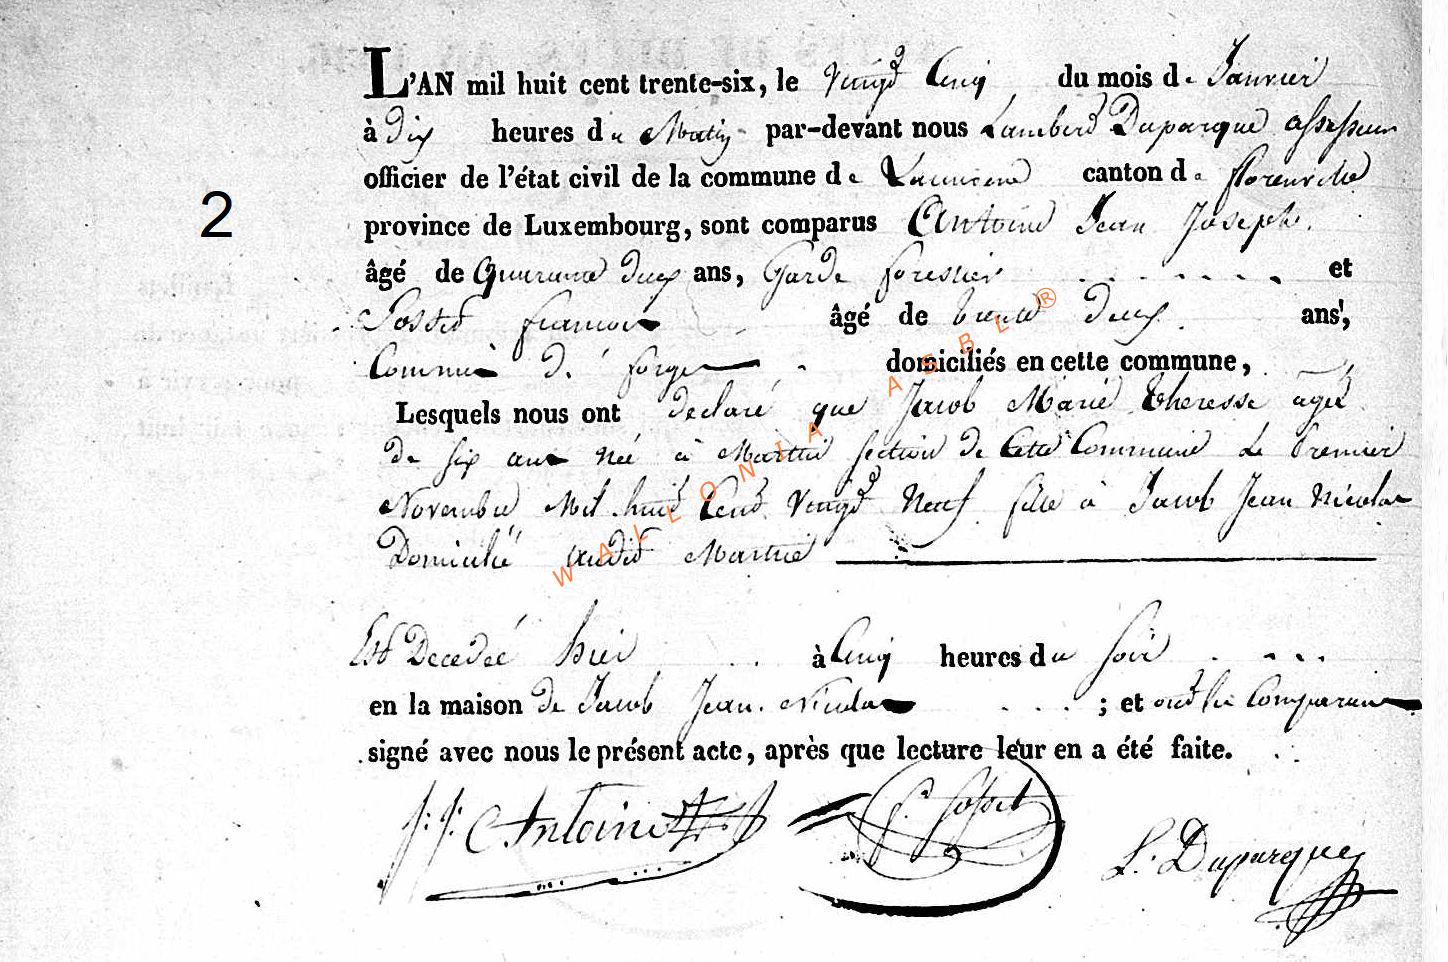 L'AN mil huit cent trente-six, le vingt Cinq du mois de Janvier
à Dix heures du Matin par-devant nous Lambert Duparque assesseur
officier de l'état civil de la commune de canton de florenville
2
province de Luxembourg, sont comparus Antoine Jean Joseph.
âgé de Quarante deux ans, Garde forestier et
françois âgé de trente Deux ans,
Commis de forges domiciliés en cette commune,
Lesquels nous ont declaré que Jacob Marie Theresse agée
de six ans née à Martué section de Cette Commune Le Premier
Novembre Mil huit Cent Vingt Neuf fille à Jacob Jean Nicolas
Domicilié audit Martué
Est Decedée hier à Cinq heures du soir
en la maison de Jacob Jean Nicolas ; et ont les Comparans
signé avec nous le présent acte, après que lecture leur en a été faite.
J: J: Antoine
L. Duparque
WALLONIA ASBL ®